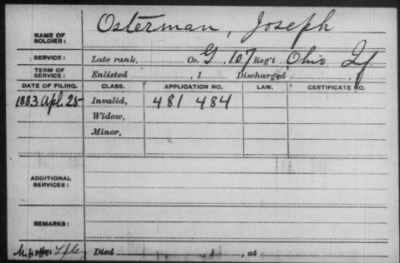 NAME OF SOLDIER: Osterman, Joseph
SERVICE: Late rank, Co. G. 107 Reg't Ohio Inf
TERM OF SERVICE: Enlisted , 1 Discharged , 1
DATE OF FILING. CLASS. APPLICATION NO. LAW. CERTIFICATE NO.
1883 Apl. 25 Invalid, 481 484
Widow,
Minor,
ADDITIONAL SERVICES:
REMARKS:
Died , 1 , at